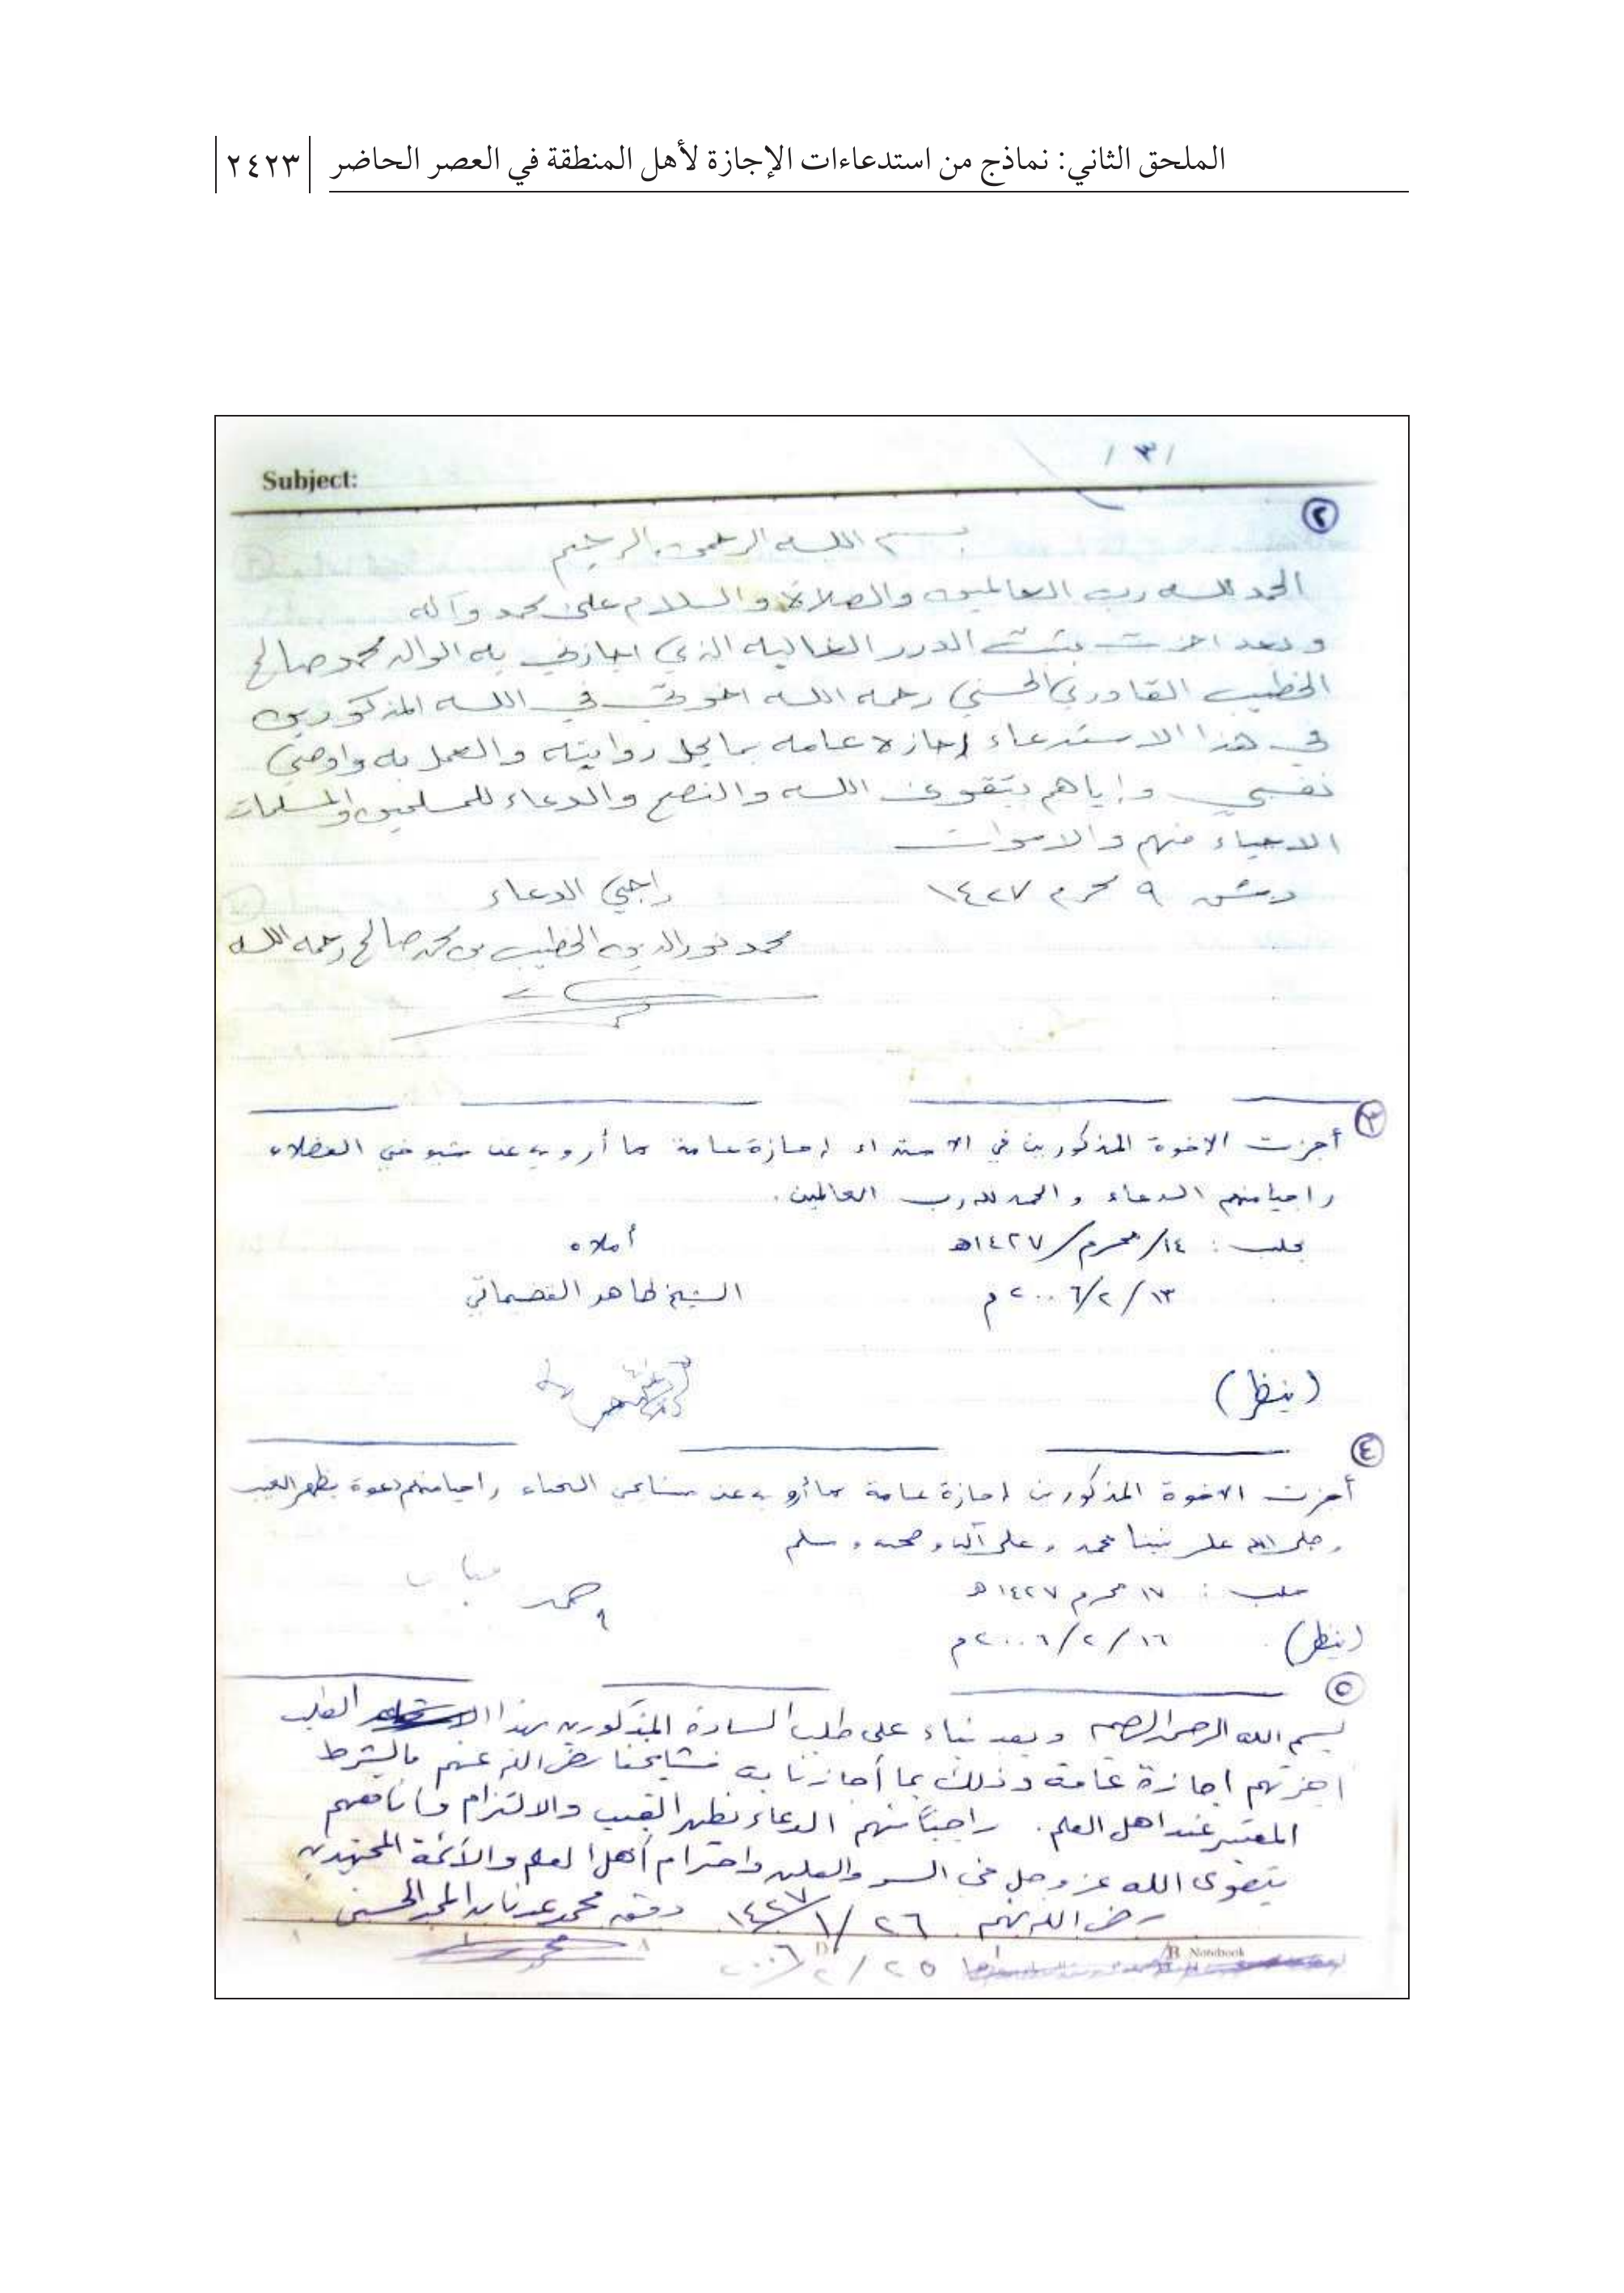 الملحق الثاني: نماذج من استدعاءات الإجازة لأهل المنطقة في العصر الحاضر ٢٤٢٣
/ ٣ /
Subject:
٢
بسم اللـه الرحمن الرحيم
الحمد للـه رب العالمين والصلاة والسلام على محمد وآله
وبعد اجزت بثبت الدرر الغاليه الذي اجازني به الوالد محمد صالح
الخطيب القادري الحسني رحمه اللـه اخوتي في اللـه المذكورين
في هذا الاستدعاء إجازه عامه بما يحل روايته والعمل به واوصي
نفسي وإياهم بتقوى اللـه والنصح والدعاء للمسلمين والمسلمات
الاحياء منهم والاموات
دمشق ٩ محرم ١٤٢٧ راجي الدعاء
محمد نور الدين الخطيب بن محمد صالح رحمه اللـه
٣
أجزت الاخوة المذكورين في الاستداء إجازة عامة بما أرويه عن شيوخي الفضلاء
راجيا منهم الدعاء والحمد لله رب العالمين.
بحلب : ١٤/محرم/١٤٢٧هـ أملاه
١٣/٢/٢٠٠٦م الشيخ طاهر
(ينظر)
٤
أجزت الاخوة المذكورين إجازة عامة بما أرويه عن مشايخي راجيا منهم دعوة بظهر الغيب
وصلى الله على نبينا محمد وعلى آله وصحبه وسلم
حلب : ١٧ محرم ١٤٢٧هـ أحمد
(ينظر) ١٦/٢/٢٠٠٦م
٥
بسم الله الرحمن الرحيم وبعد بناء على طلب السادة المذكورين بهذا الطلب
اجزتهم اجازة عامة وذلك بما أجازنا به مشايخنا رضي الله عنهم بالشرط
المعتبر عند اهل العلم. راجيًا منهم الدعاء بظهر الغيب والالتزام
بتقوى الله عز وجل في السر والعلن واحترام أهل العلم والأئمة المجتهدين
رضي الله عنهم ٢٦/١/١٤٢٧ دمشق محمد عدنان المجد الحسني
٢٥/٢/٢٠٠٦
Notebook